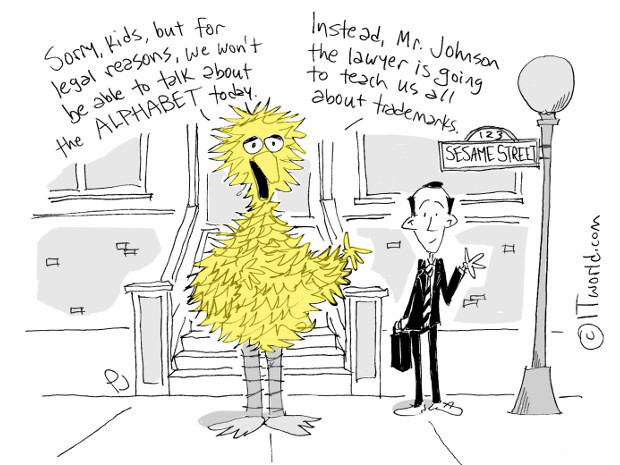 Sorry, kids, but for
legal reasons, we won't
be able to talk about
the ALPHABET today.
Instead, Mr. Johnson
the lawyer is going
to teach us all
about trademarks.
123
SESAME STREET
© ITworld.com
PJ